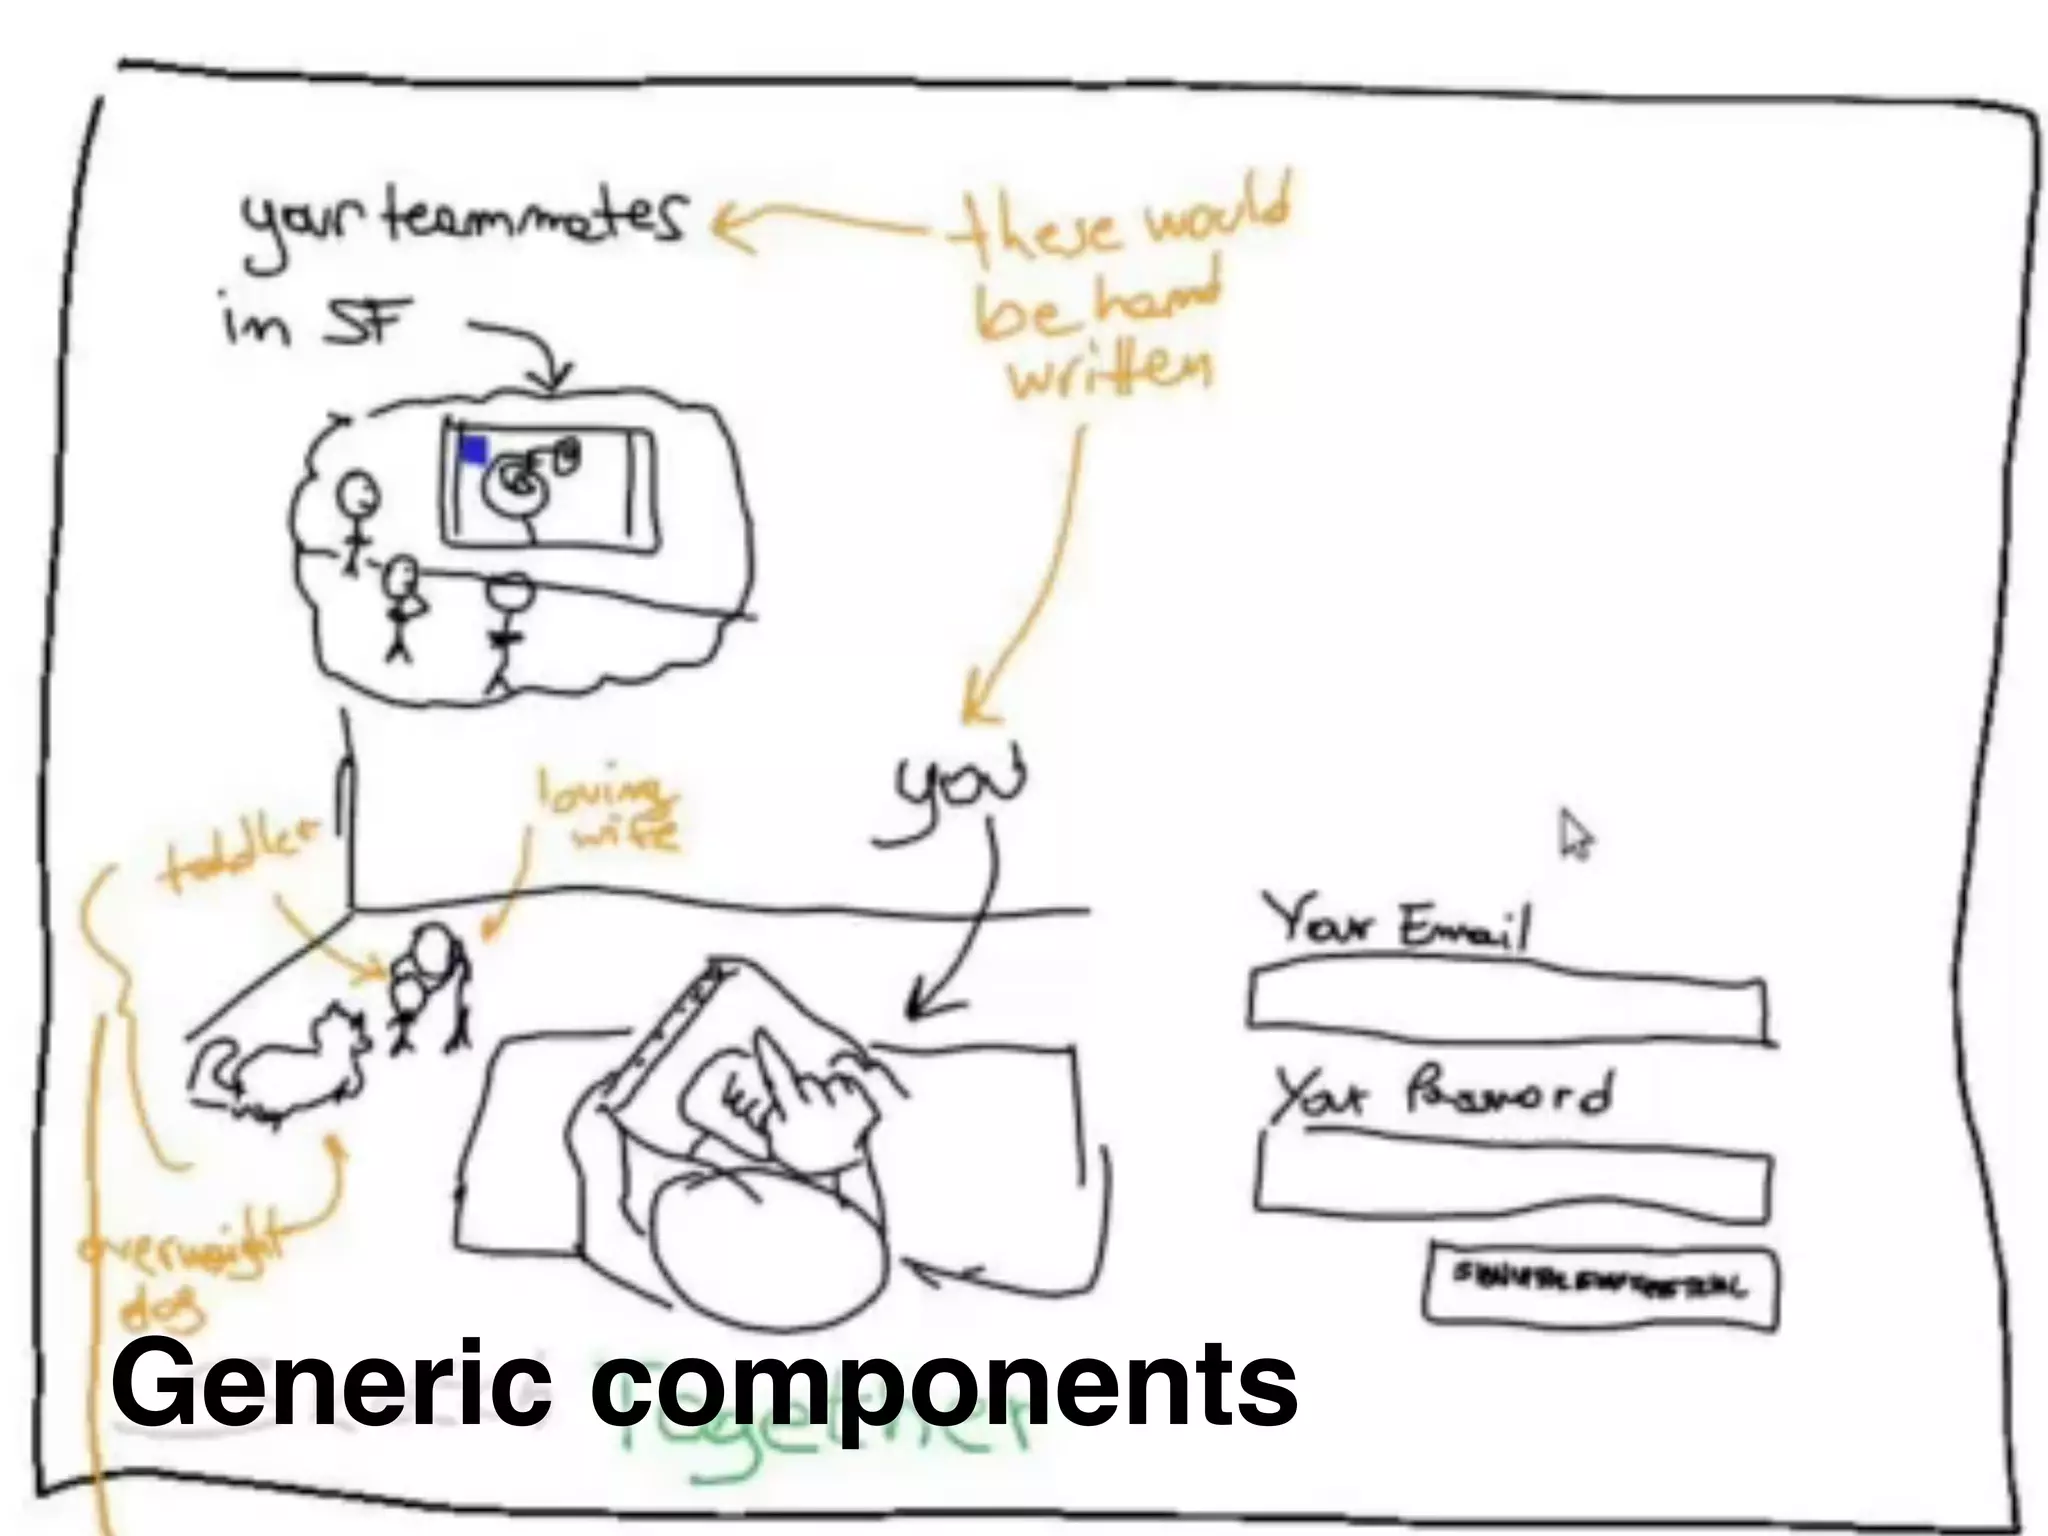 your teammates
in SF
these would
be hand
written
you
toddler
loving
wife
overweight
dog
Your Email
Your Password
Generic components
Together